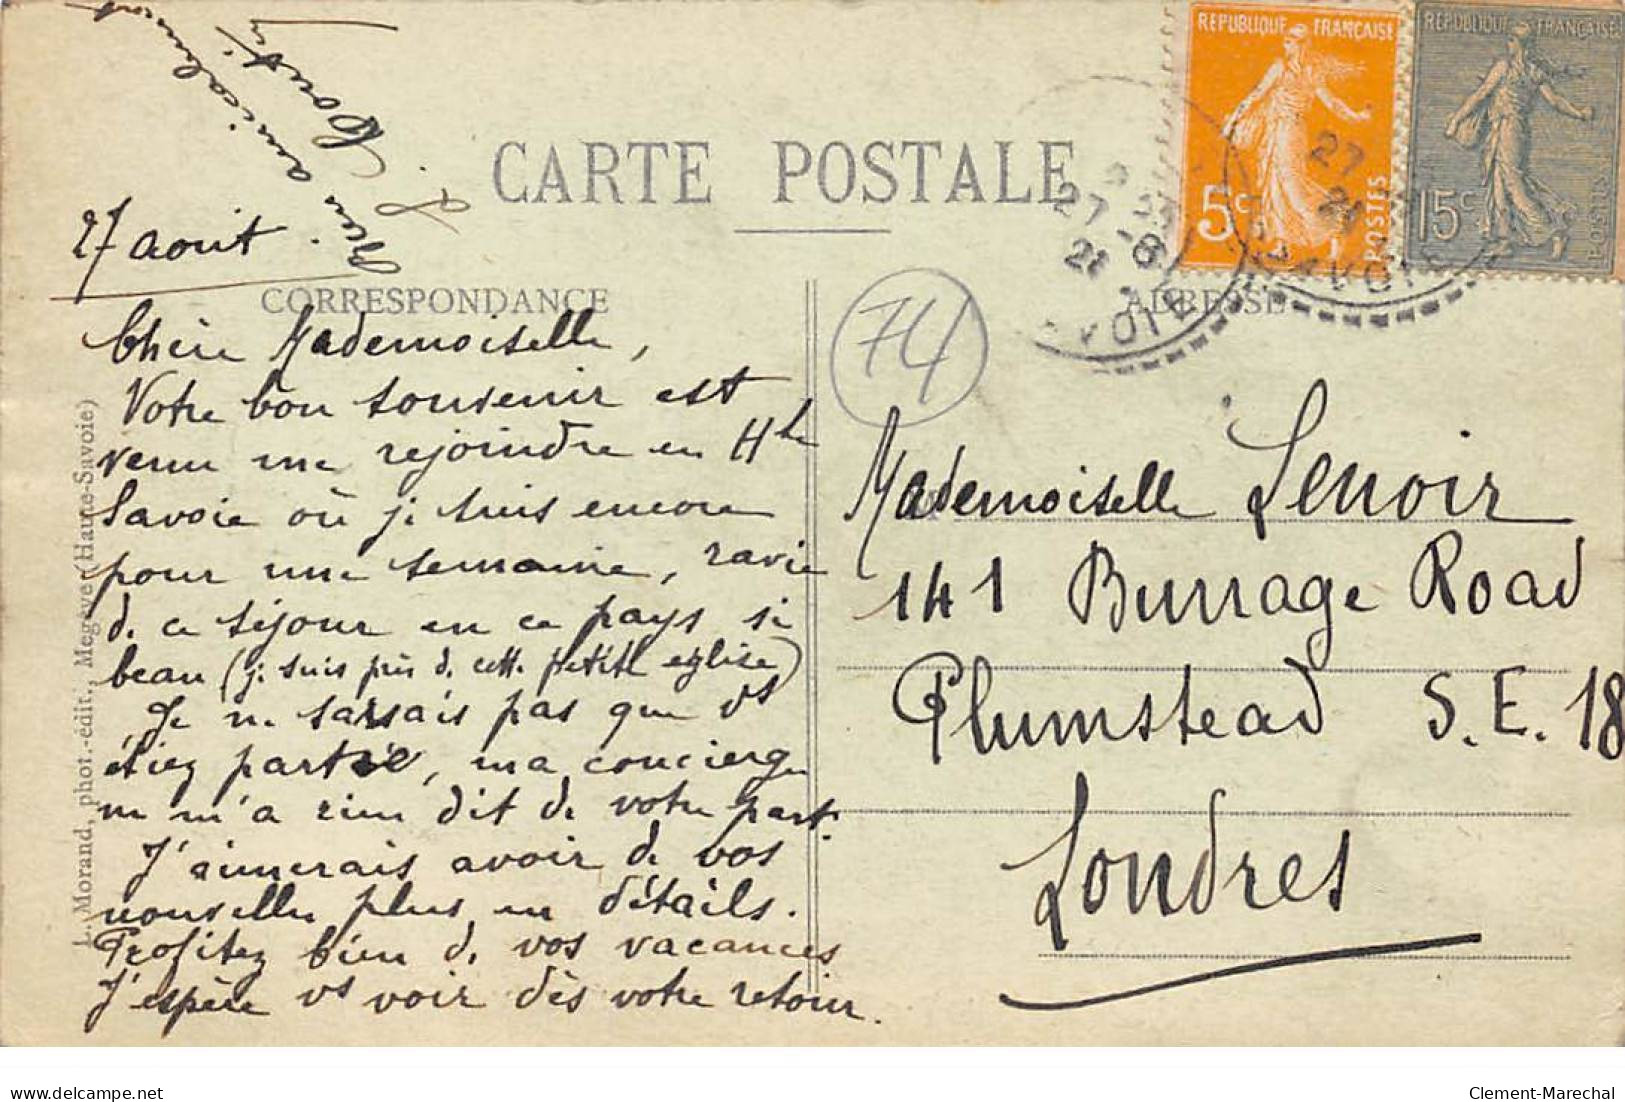 Bien amicalement
CARTE POSTALE
REPUBLIQUE FRANÇAISE
5c
POSTES
REPUBLIQUE FRANÇAISE
15c
POSTES
27 -8
27
27 aout.
CORRESPONDANCE
ADRESSE
74
Chère Mademoiselle,
Votre bon souvenir est
venu me rejoindre en Hte
Savoie où je suis encore
pour une semaine, ravie
de ce séjour en ce pays si
beau (je suis près de cette petite église)
Je ne savais pas que vs
étiez partie, ma concierge
ne m'a rien dit de votre part.
J'aimerais avoir de vos
nouvelles plus en détails.
Profitez bien de vos vacances
J'espère vs voir dès votre retour.
Mademoiselle Lenoir
141 Burrage Road
Plumstead S.E. 18
Londres
L. Morand, phot.-édit., Megève (Haute-Savoie)
delcampe.net
Clement-Marechal